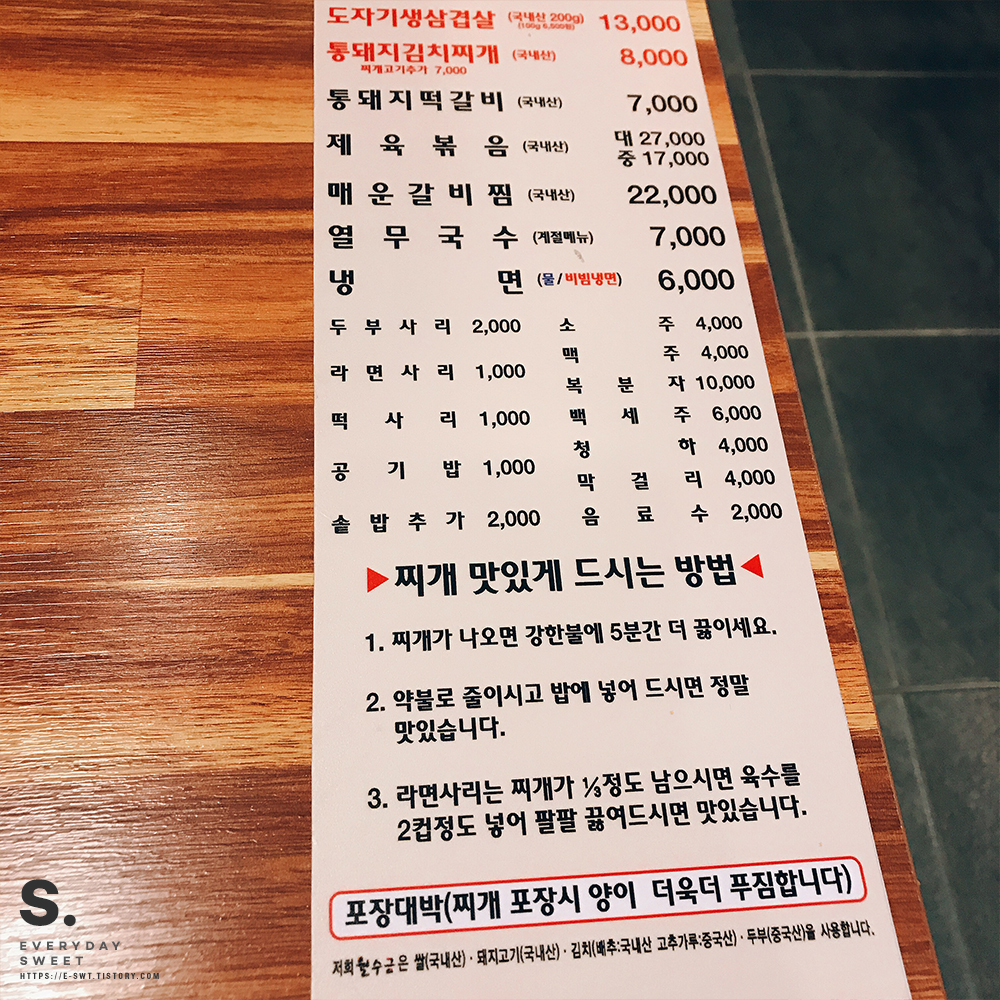 도자기생삼겹살 (국내산 200g) 13,000
(100g 6,500원)
통돼지김치찌개 (국내산) 8,000
찌개고기추가 7,000
통돼지떡갈비 (국내산) 7,000
제육볶음 (국내산) 대 27,000
중 17,000
매운갈비찜 (국내산) 22,000
열무국수 (계절메뉴) 7,000
냉면 (물/비빔냉면) 6,000
두부사리 2,000
라면사리 1,000
떡사리 1,000
공기밥 1,000
솥밥추가 2,000
소주 4,000
맥주 4,000
복분자 10,000
백세주 6,000
청하 4,000
막걸리 4,000
음료수 2,000
▶찌개 맛있게 드시는 방법◀
1. 찌개가 나오면 강한불에 5분간 더 끓이세요.
2. 약불로 줄이시고 밥에 넣어 드시면 정말
맛있습니다.
3. 라면사리는 찌개가 ⅓정도 남으시면 육수를
2컵정도 넣어 팔팔 끓여드시면 맛있습니다.
포장대박(찌개 포장시 양이 더욱더 푸짐합니다)
저희 월수금은 쌀(국내산)·돼지고기(국내산)·김치(배추:국내산 고추가루:중국산)·두부(중국산)을 사용합니다.
S.
EVERYDAY
SWEET
HTTPS://E-SWT.TISTORY.COM